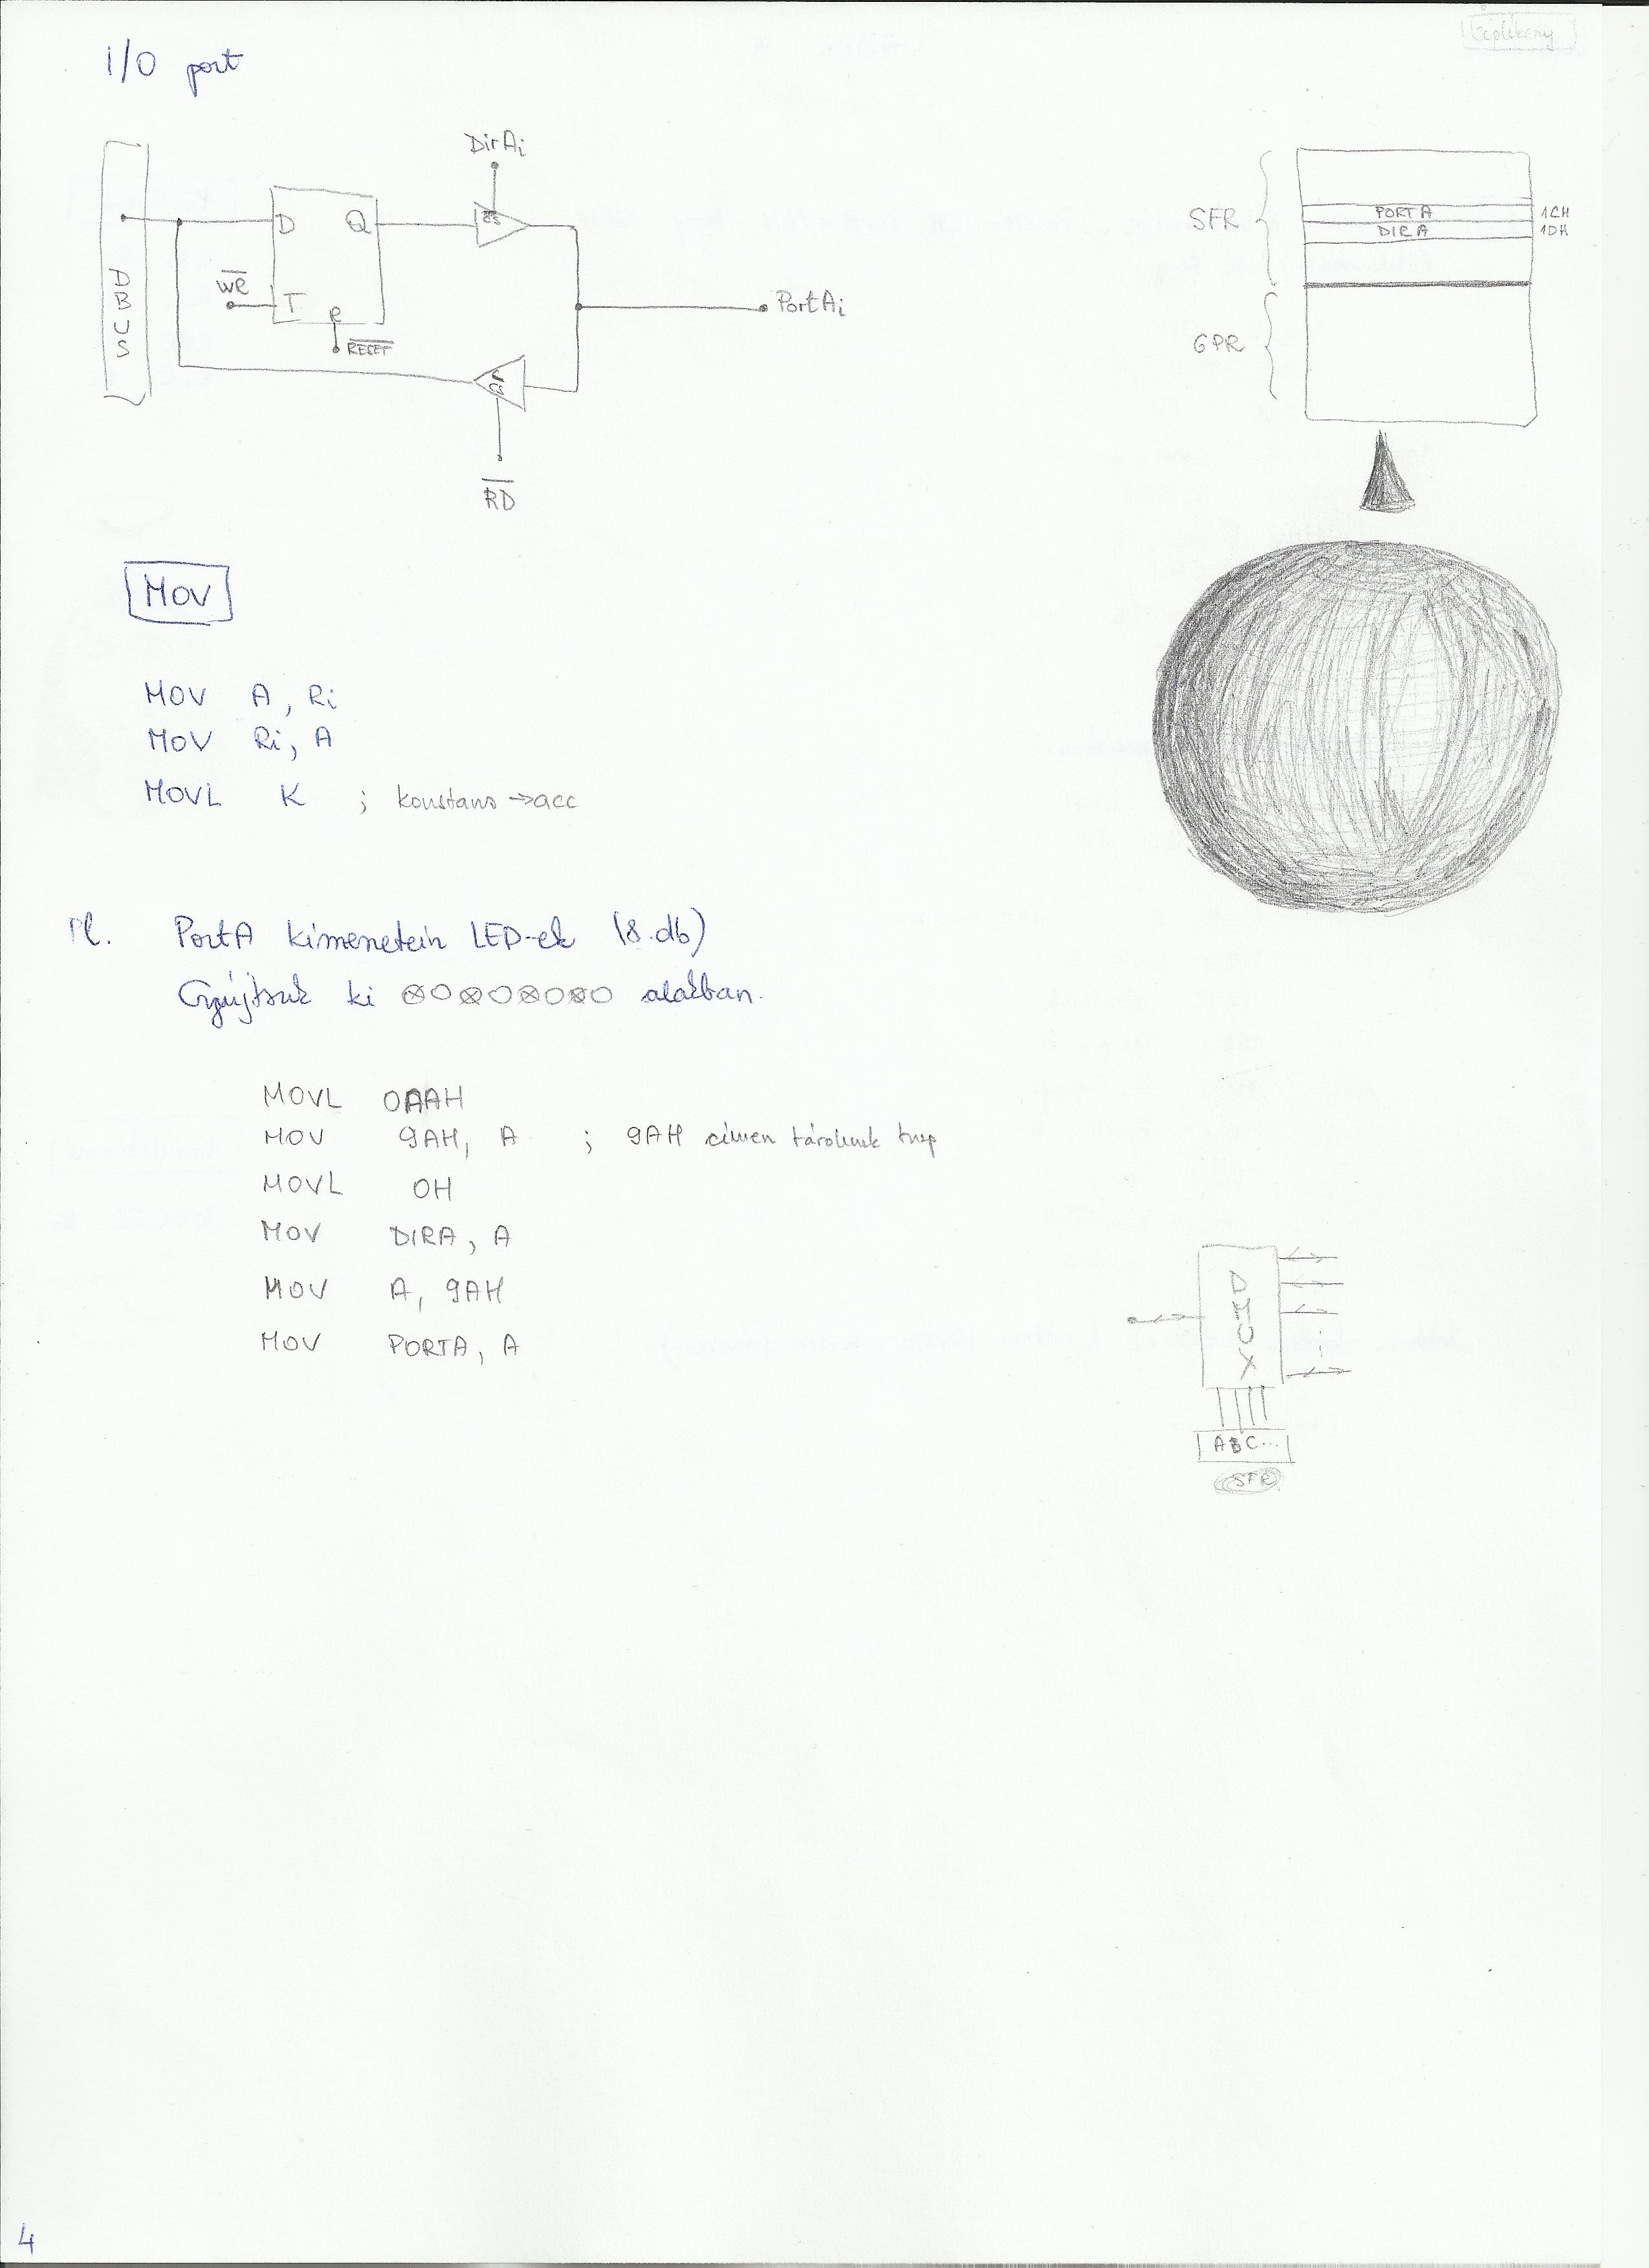 I/O port
DirAi
CS
D Q
WE
T R
RESET
DBUS
PortAi
CS
RD
SFR
PORT A 1CH
DIR A 1DH
GPR
MOV
MOV A, Ri
MOV Ri, A
MOVL K ; konstans → acc
Pl. PortA kimenetein LED-ek (8 db)
Gyújtsuk ki ⊗○⊗○⊗○⊗○ alakban.
MOVL 0AAH
MOV 9AH, A ; 9AH címen tárolunk
MOVL 0H
MOV DIRA, A
MOV A, 9AH
MOV PORTA, A
DMUX
ABC...
SFR
4